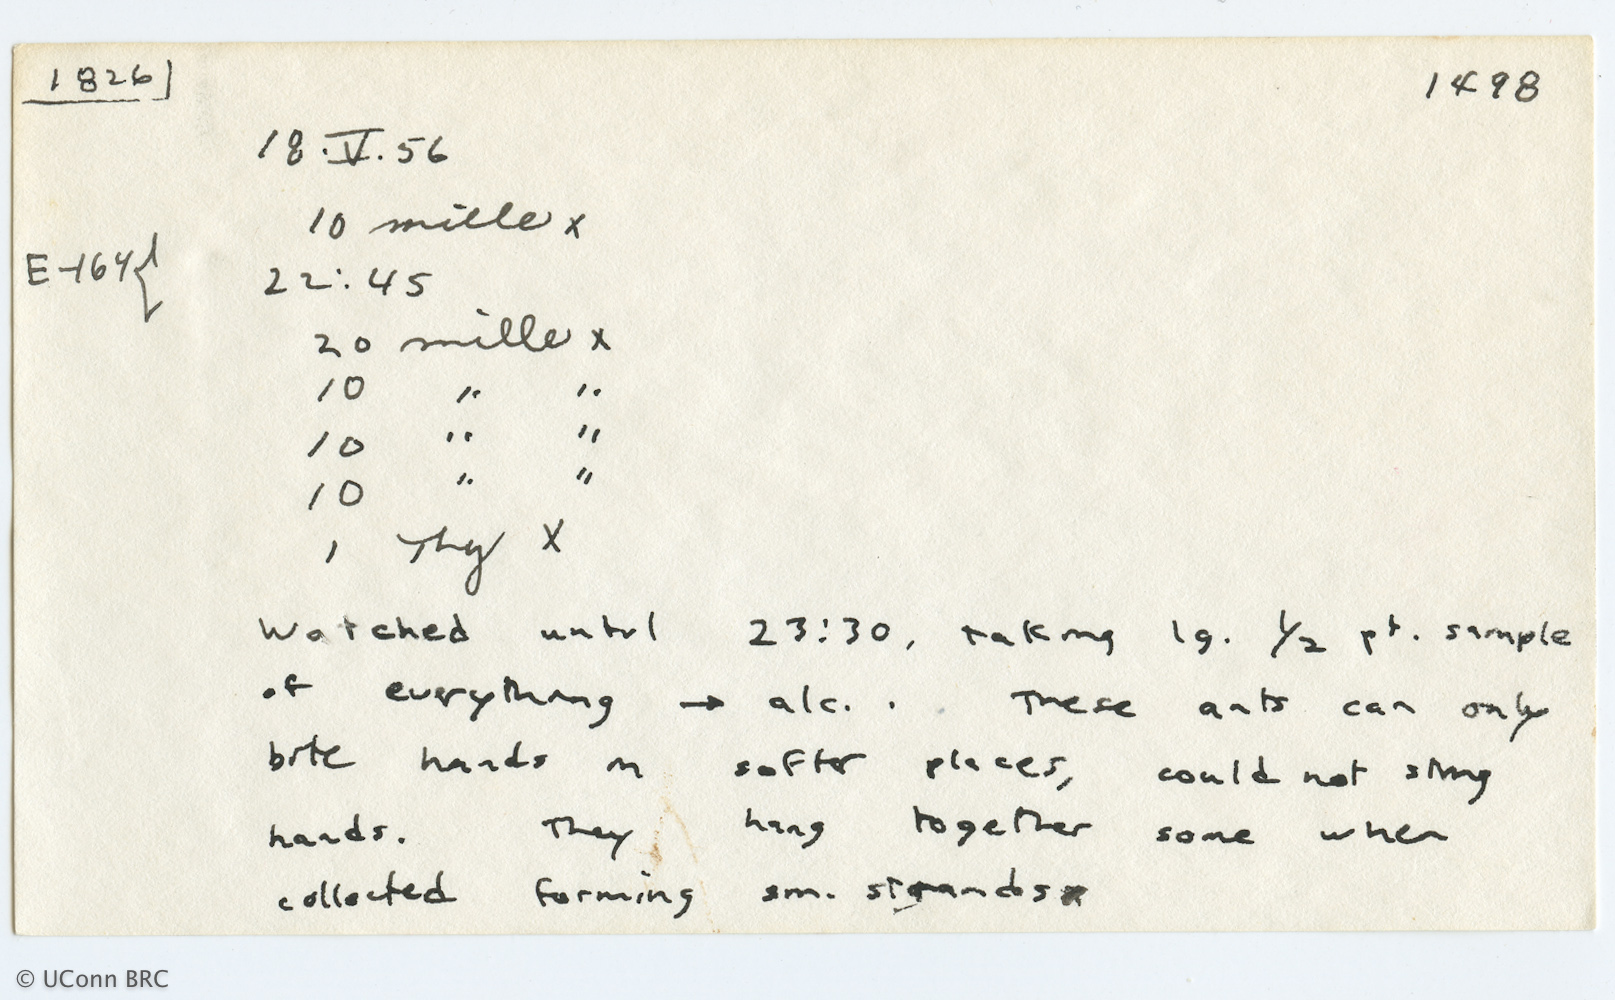 1826]
1498
18.V.56
10 mille x
E-164{
22:45
20 mille x
10 " "
10 " "
10 " "
1 Thy X
Watched until 23:30, taking lg. 1/2 pt. sample
of everything → alc.. These ants can only
bite hands in softer places, could not sting
hands. They hang together some when
collected forming sm. strands
© UConn BRC